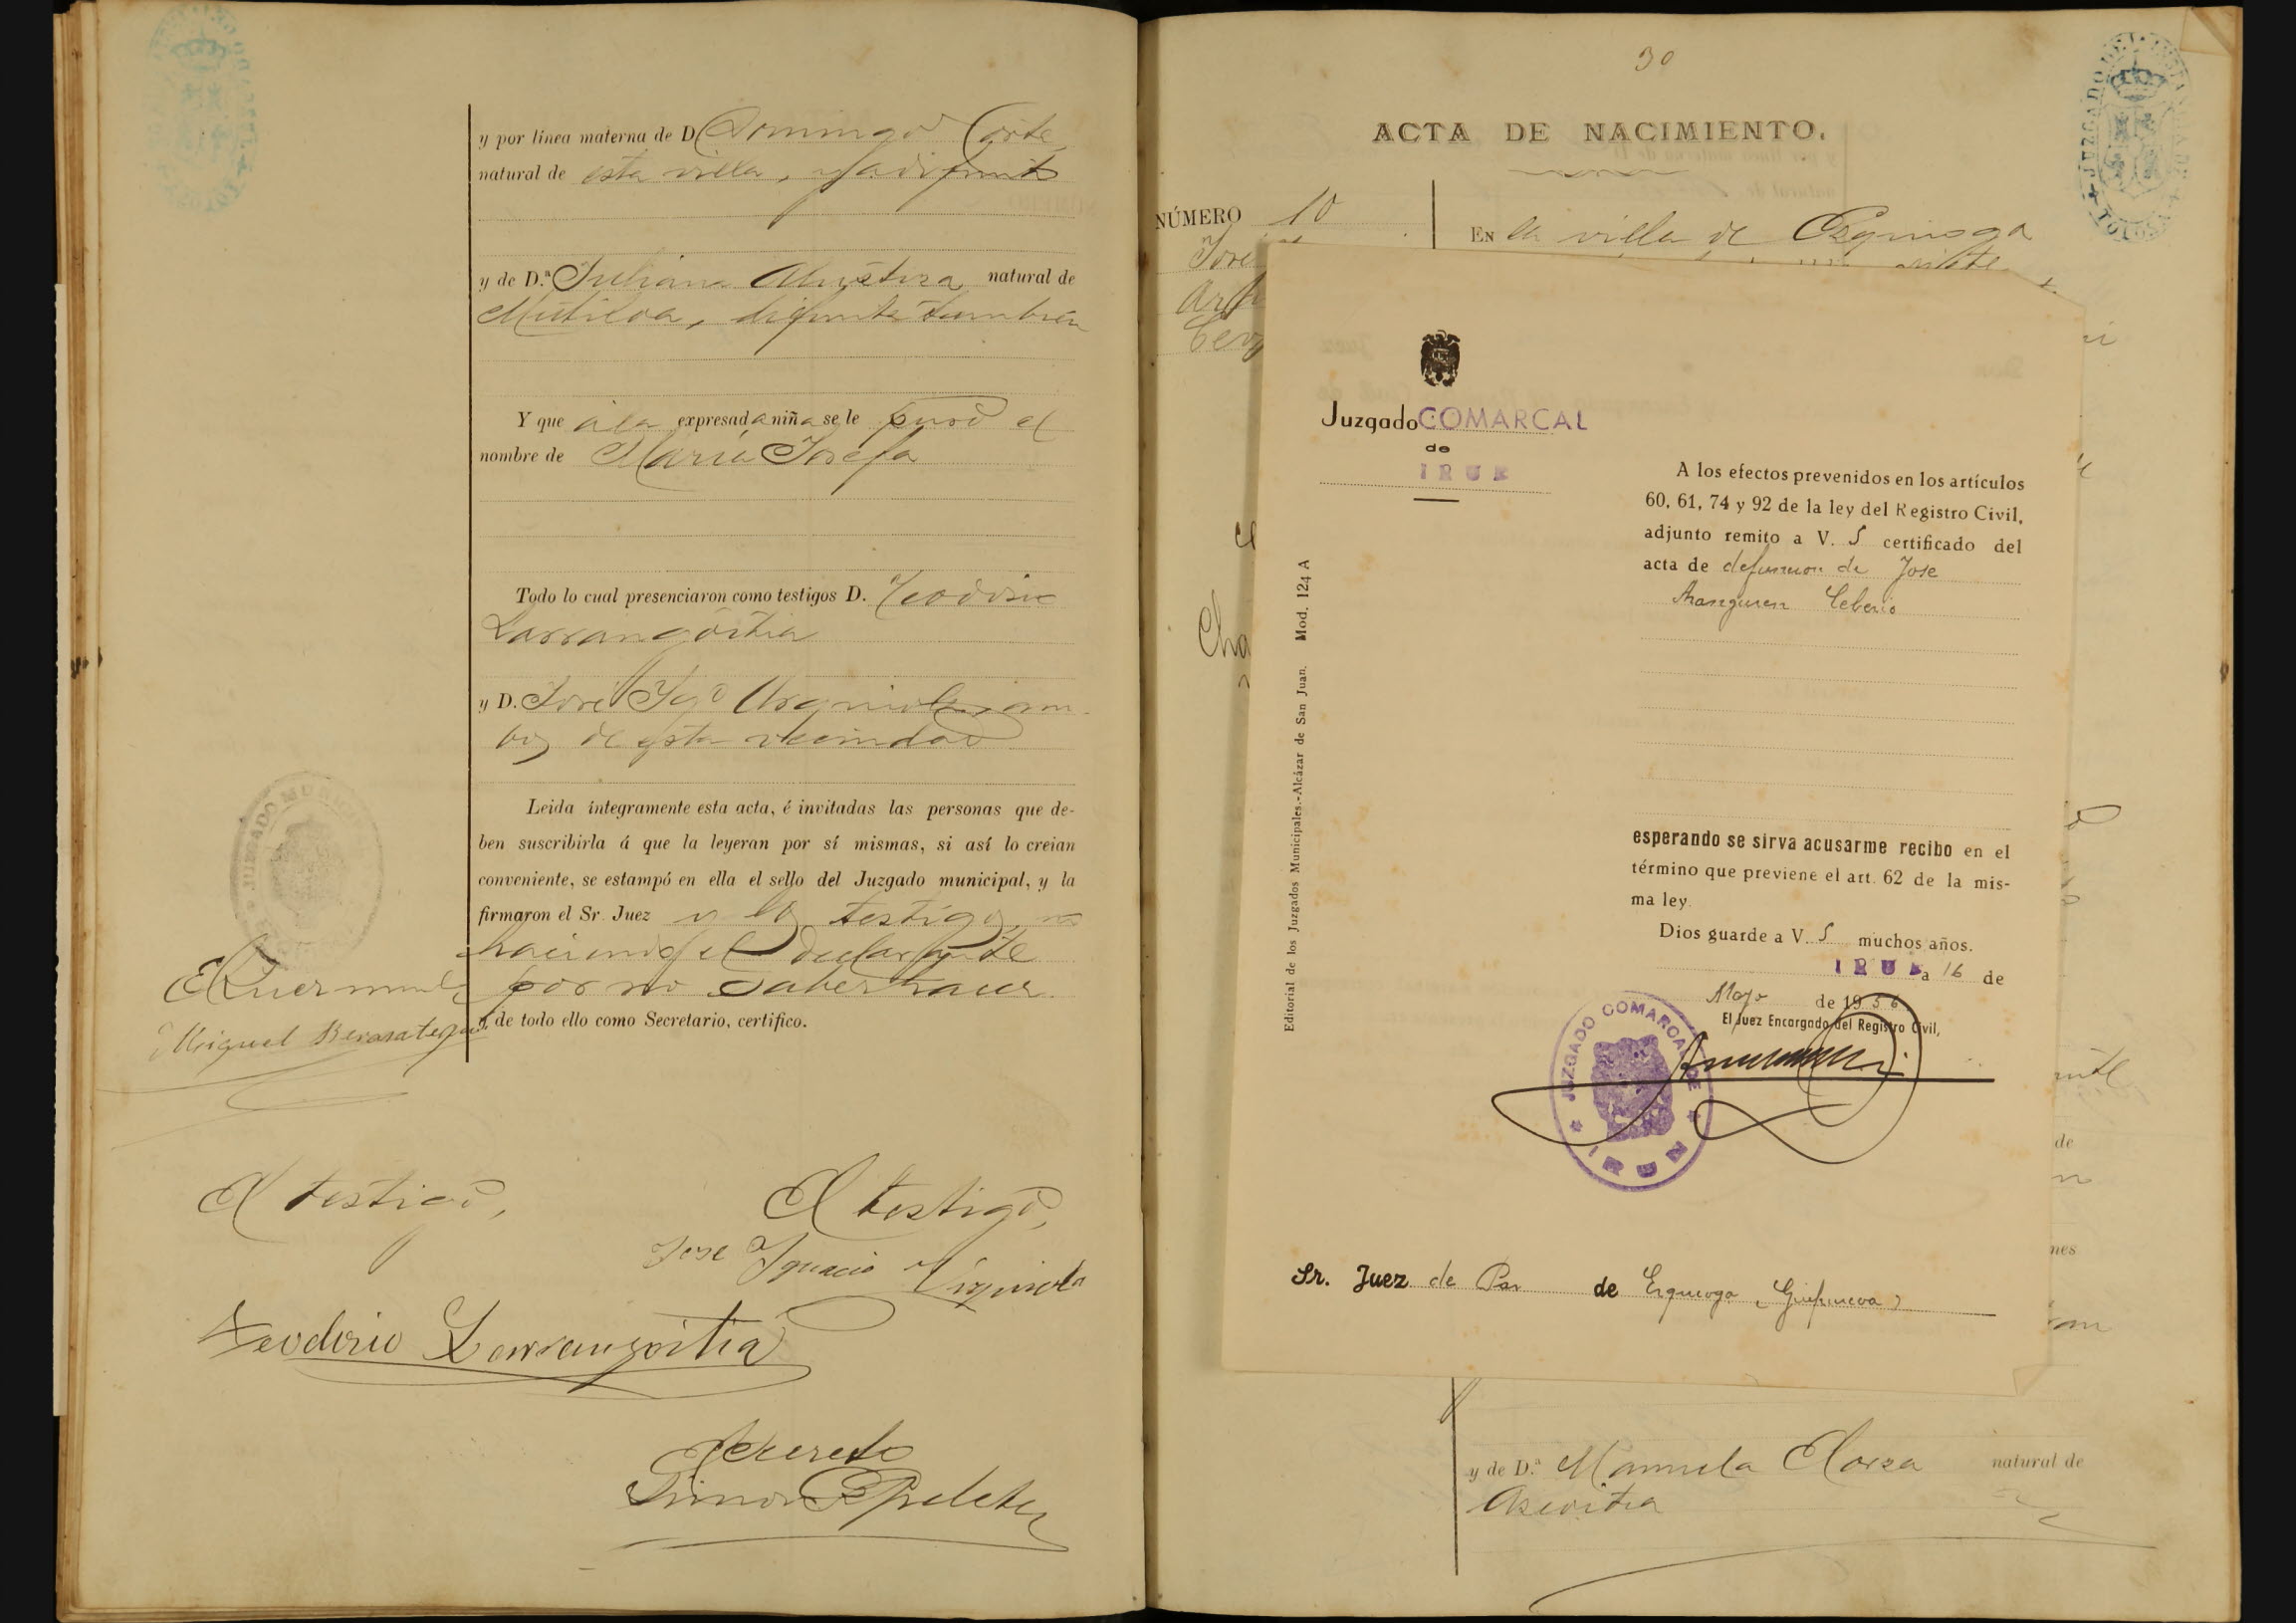 y por línea materna de D Domingo Corte
natural de esta villa, ya difunto
y de D.ª Juliana natural de
Mutiloa, difunta tambien
Y que á la expresada niña se le puso el
nombre de María Josefa
Todo lo cual presenciaron como testigos D. Teodosio
Larrangoitia
y D. José Igº Urquiola, am-
bos de esta vecindad
Leida íntegramente esta acta, é invitadas las personas que de-
ben suscribirla á que la leyeran por sí mismas, si así lo creian
conveniente, se estampó en ella el sello del Juzgado municipal, y la
firmaron el Sr. Juez y los testigos, no
haciendo el declarante
por no saber hacer.
y de todo ello como Secretario, certifico.
JUZGADO MUNICI
El Juez
Miguel Berasategui
El testigo,
El testigo,
Jose Ignacio Urquiola
Teodosio Larrangoitia
Simon
30
ACTA DE NACIMIENTO.
JUZGADO DE 1ª INSTANCIA DE TOLOSA
NÚMERO 10
En la villa de Ezquioga
José
Juzgado COMARCAL
de
IRUN
A los efectos prevenidos en los artículos
60, 61, 74 y 92 de la ley del Registro Civil,
adjunto remito a V. S certificado del
acta de defuncion de Jose
Aranguren Ceberio
esperando se sirva acusarme recibo en el
término que previene el art. 62 de la mis-
ma ley.
Dios guarde a V. S muchos años.
IRUN a 16 de
Mayo de 1956
El Juez Encargado del Registro Civil,
JUZGADO COMARCAL DE IRUN
Sr. Juez de Paz de Ezquioga (Guipuzcoa)
Editorial de los Juzgados Municipales.-Alcázar de San Juan. Mod. 124 A
y de D.ª Manuela Elorza natural de
Azcoitia